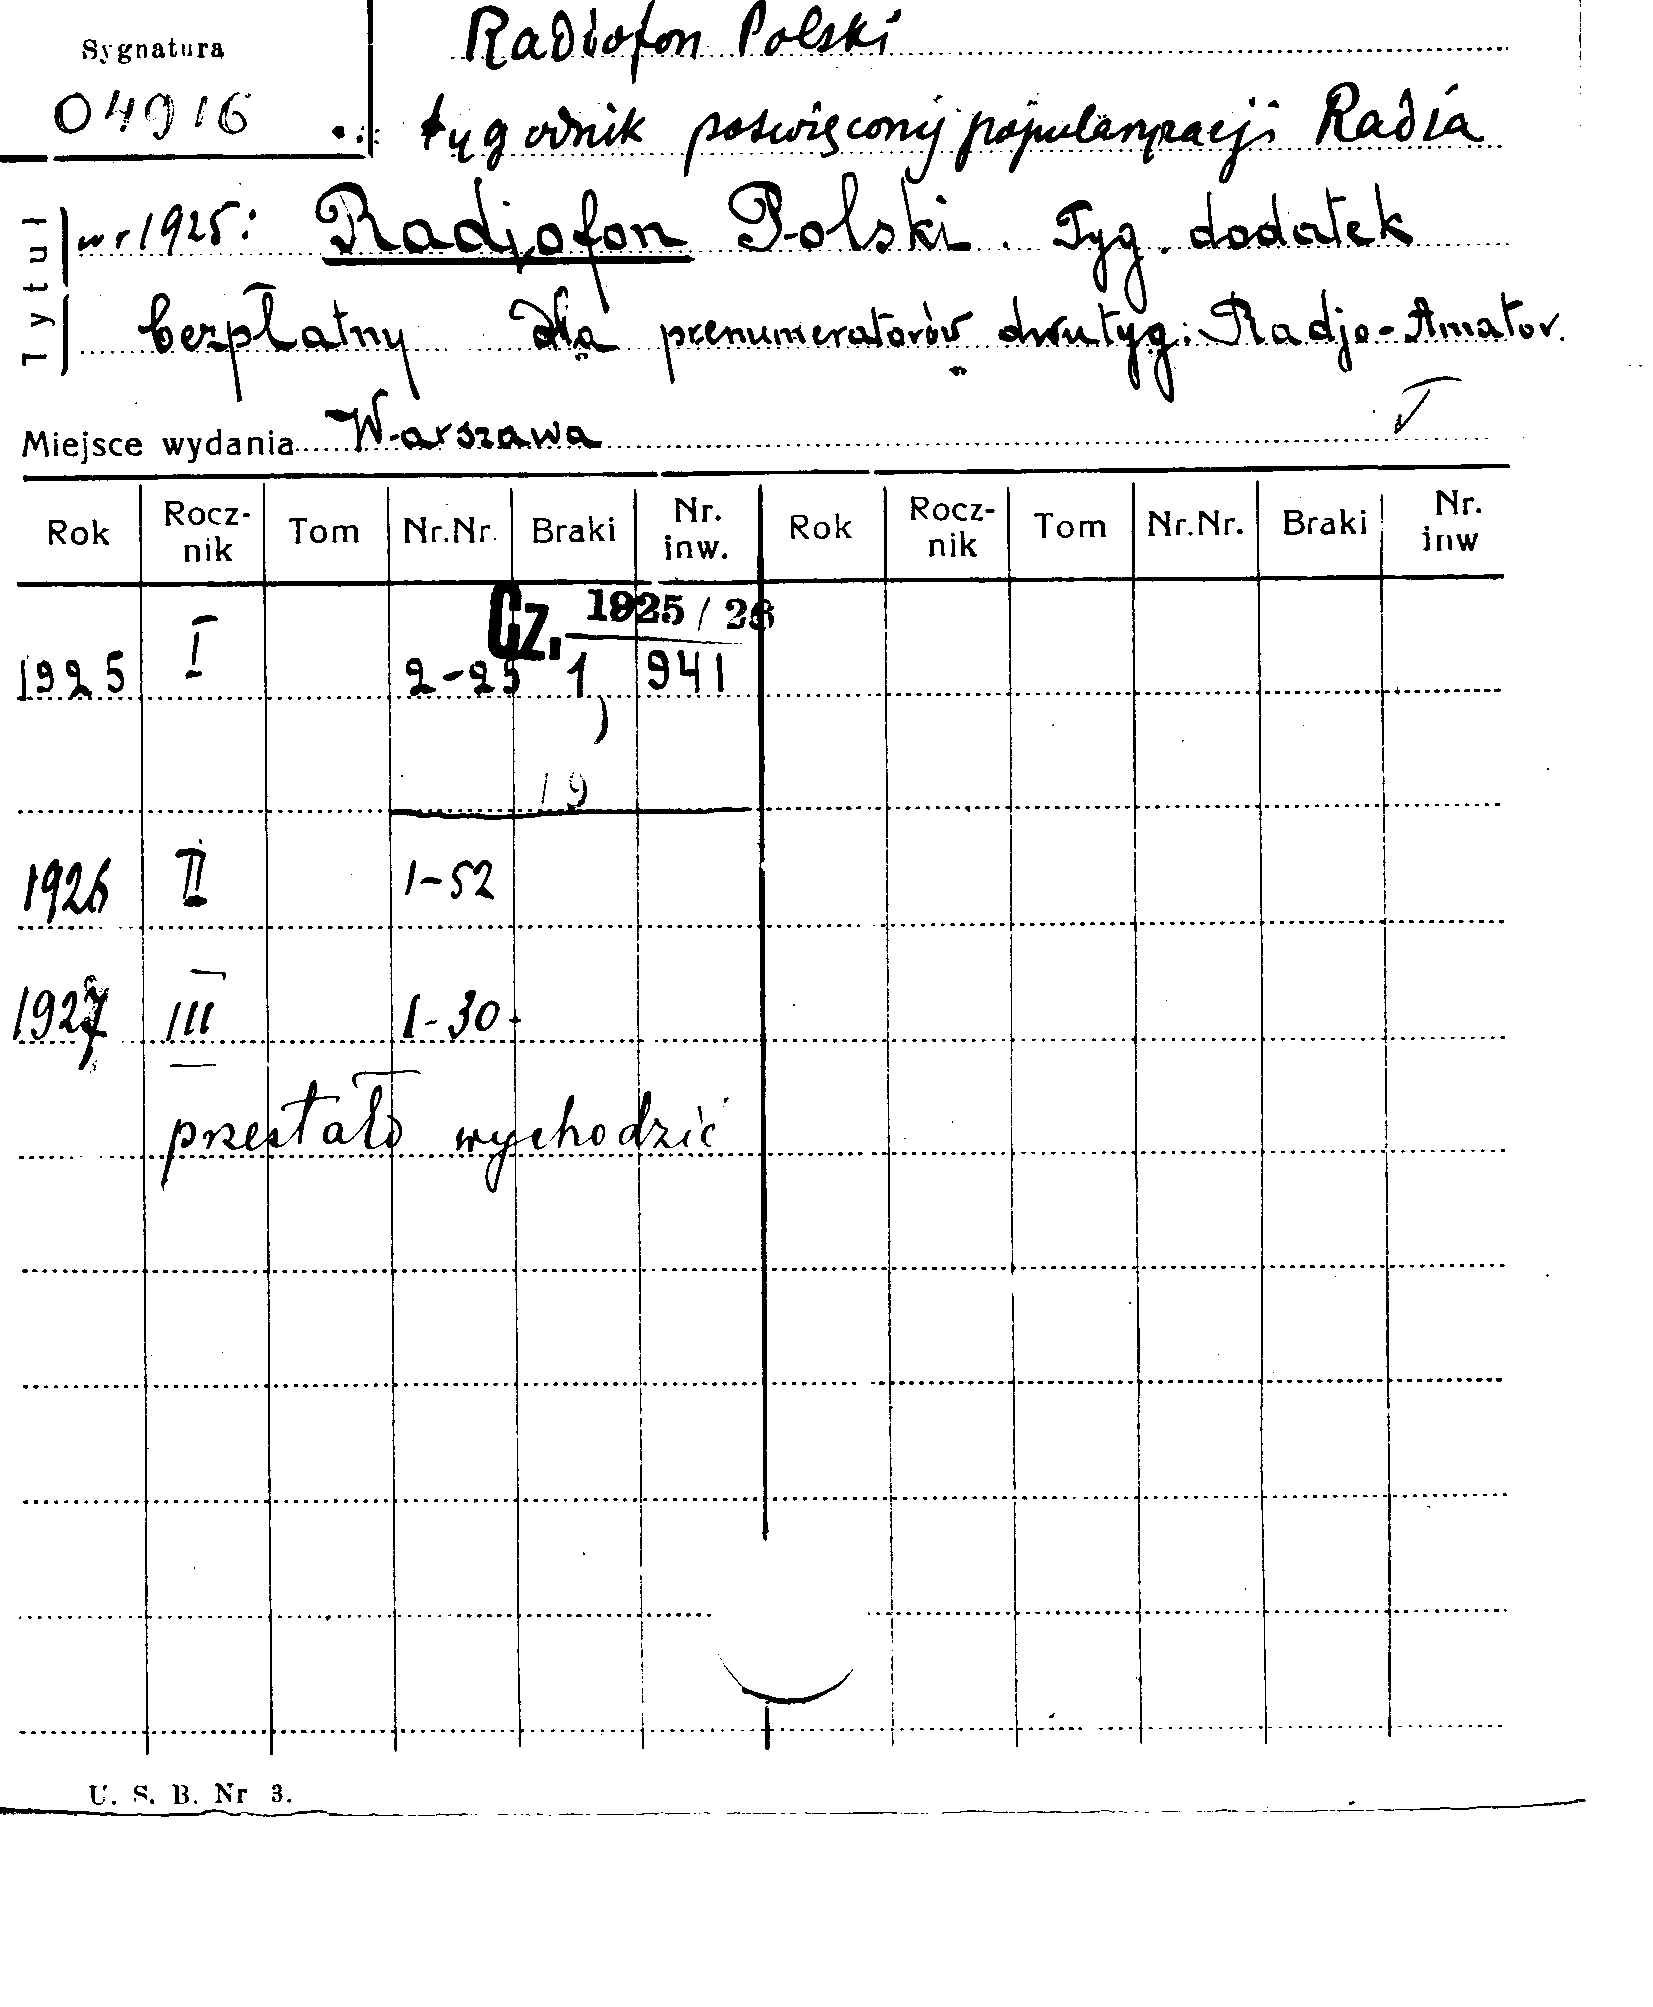 Radiofon Polski
Sygnatura
04916
tygodnik poświęcony popularyzacji Radia
Tytuł
w r 1925: Radjofon Polski. Tyg. dodatek
bezpłatny dla prenumeratorów dwutyg: Radjo-Amator.
Miejsce wydania Warszawa
Rok Rocz-nik Tom Nr.Nr. Braki Nr. inw. Rok Rocz-nik Tom Nr.Nr. Braki Nr. inw
Cz. 1925/26
1925 I 2-25 1 941
19
1926 II 1-52
1927 III 1-30
przestało wychodzić
U. S. B. Nr 3.